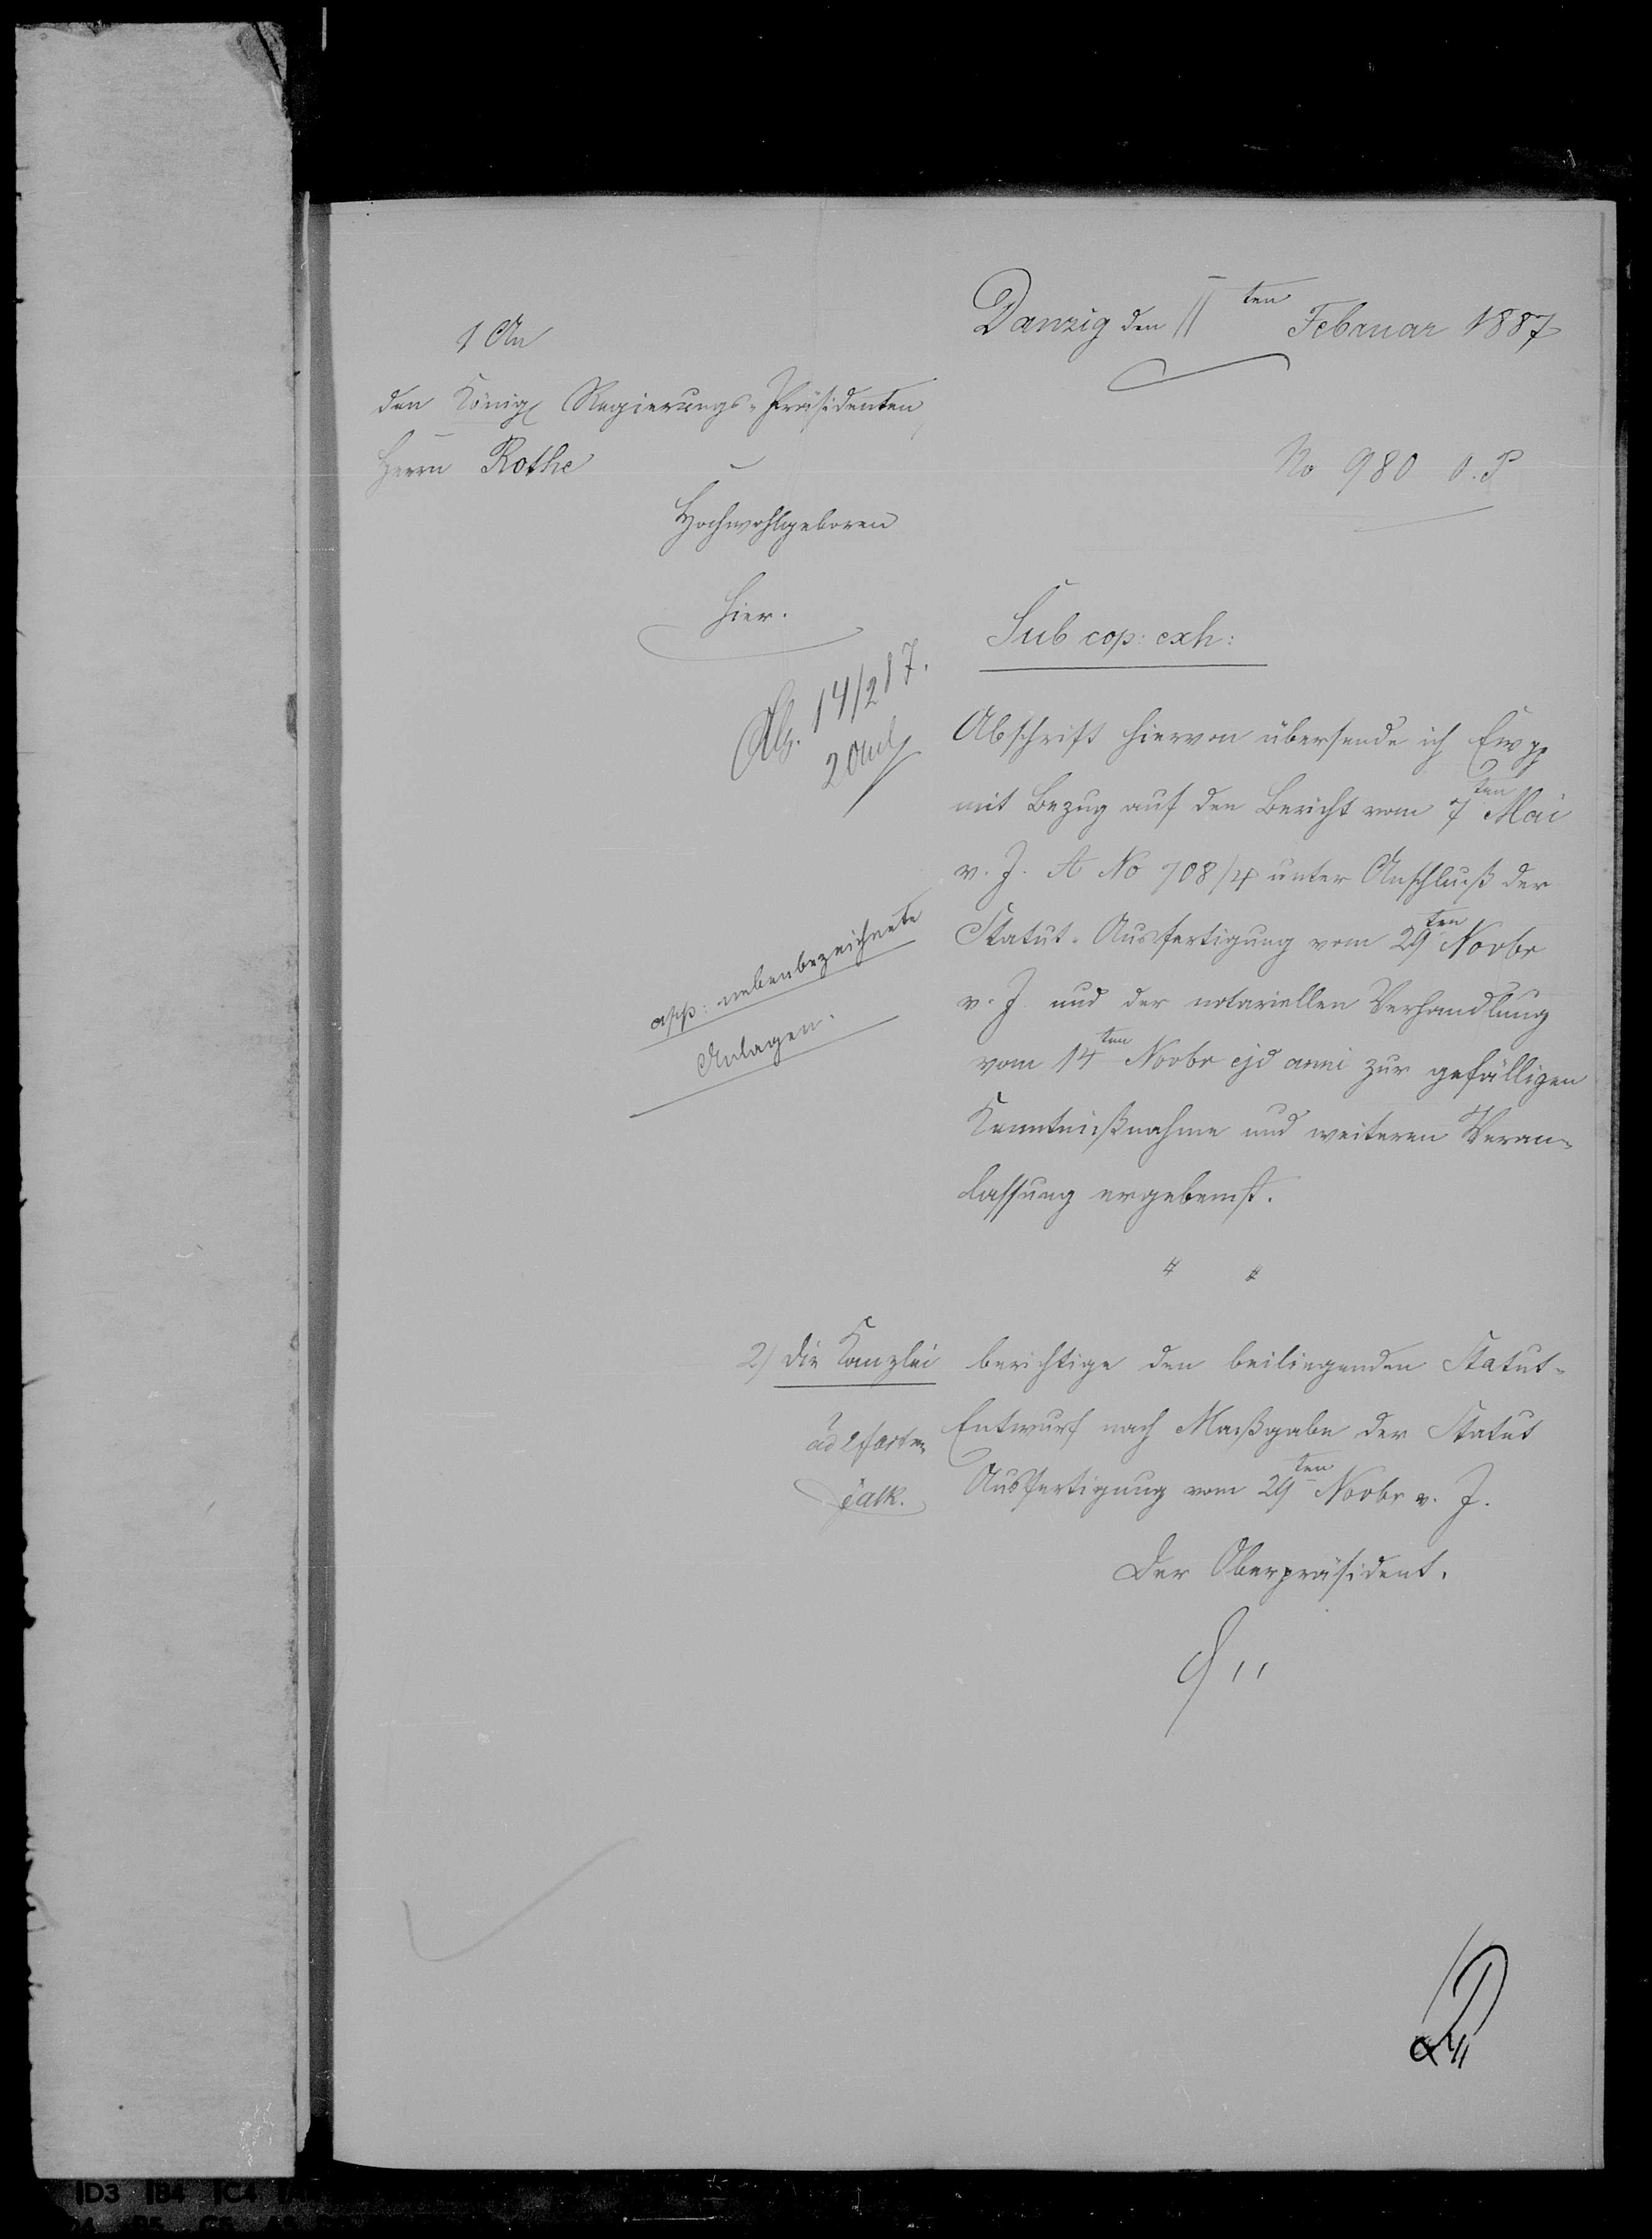 Danzig den 11ten Februar 1887
1 An
den Königl Regierungs-Präsidenten,
Herrn Rothe
No 980 O.P
Hochwohlgeboren
hier.
Sub cop: exh:
14/2 87.
2 Anl
Abschrift hiervon übersende ich Ew pp
mit Bezug auf den Bericht vom 7ten Mai
v. J. A No 708/4 unter Anschluß der
Statut-Ausfertigung vom 29ten Novbr
v. J. und der notariellen Verhandlung
vom 14ten Novbr ejd anni zur gefälligen
Kenntnißnahme und weiteren Veran-
lassung ergebenst.
app: nebenbezeichnete
Anlagen.
2) Die Kanzlei berichtige den beiliegenden Statut-
Entwurf nach Maßgabe der Statut
Ausfertigung vom 29ten Novbr v. J.
ad 2
Der Oberpräsident.